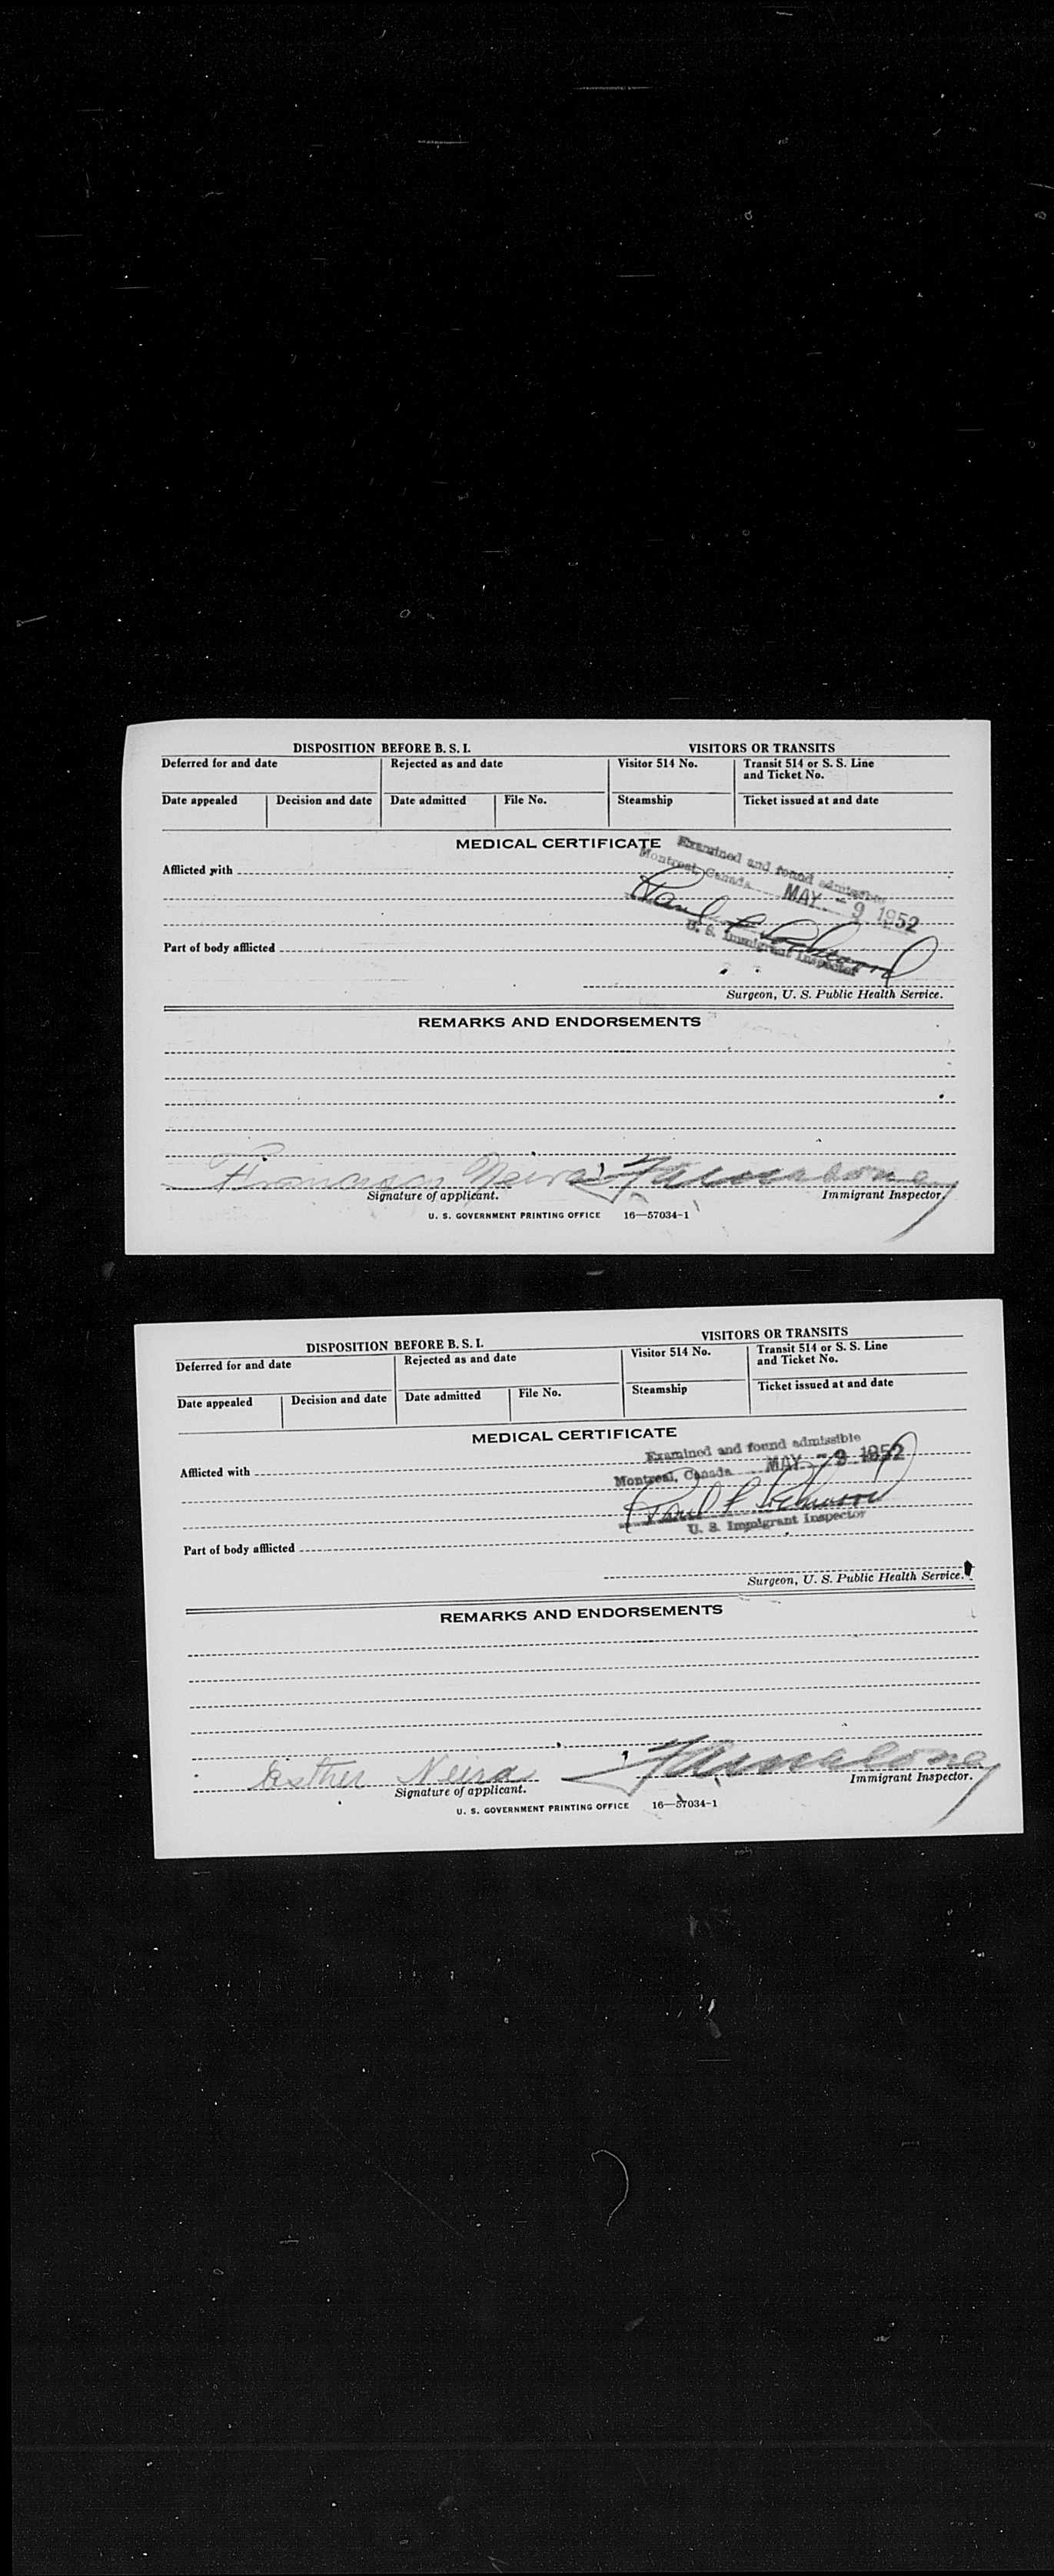 DISPOSITION BEFORE B. S. I. VISITORS OR TRANSITS
Deferred for and date Rejected as and date Visitor 514 No. Transit 514 or S. S. Line and Ticket No.
Date appealed Decision and date Date admitted File No. Steamship Ticket issued at and date
MEDICAL CERTIFICATE
Examined and found admissible
Afflicted with
Montreal, Canada MAY - 9 1952
Paul
U. S. Immigrant Inspector
Part of body afflicted
Surgeon, U. S. Public Health Service.
REMARKS AND ENDORSEMENTS
Francisco Neira
Signature of applicant. Immigrant Inspector.
U. S. GOVERNMENT PRINTING OFFICE 16—57034-1
DISPOSITION BEFORE B. S. I. VISITORS OR TRANSITS
Deferred for and date Rejected as and date Visitor 514 No. Transit 514 or S. S. Line and Ticket No.
Date appealed Decision and date Date admitted File No. Steamship Ticket issued at and date
MEDICAL CERTIFICATE
Examined and found admissible
Afflicted with
Montreal, Canada MAY - 9 1952
Paul
U. S. Immigrant Inspector
Part of body afflicted
Surgeon, U. S. Public Health Service.
REMARKS AND ENDORSEMENTS
Esther Neira
Signature of applicant. Immigrant Inspector.
U. S. GOVERNMENT PRINTING OFFICE 16—57034-1